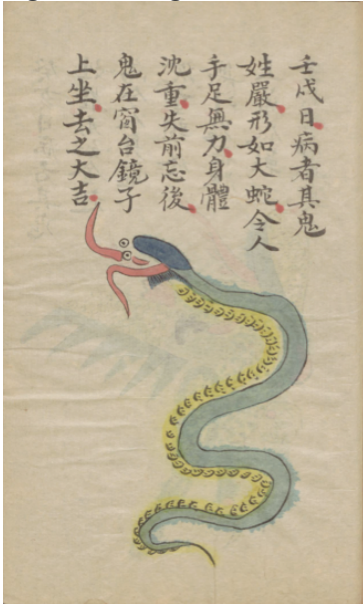 壬戌日病者其鬼
姓嚴形如大蛇令人
手足無力身體
沈重失前忘後
鬼在窗台鏡子
上坐去之大吉